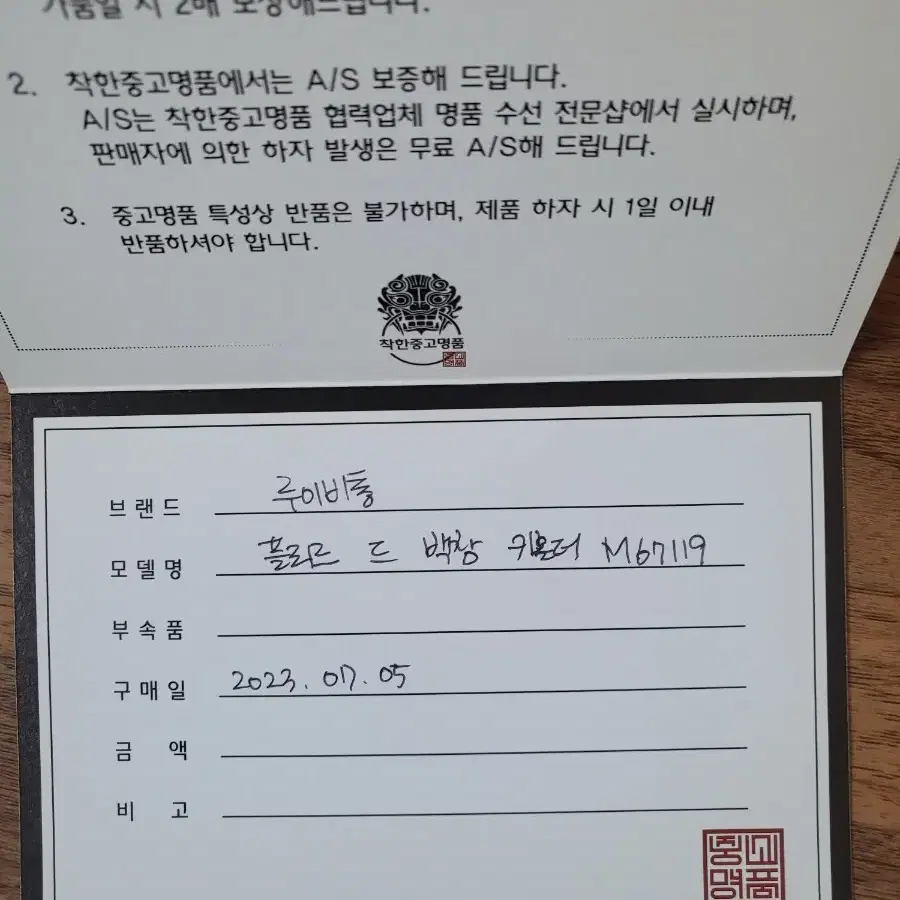 가품일 시 2배 보상해드립니다.
2. 착한중고명품에서는 A/S 보증해 드립니다.
A/S는 착한중고명품 협력업체 명품 수선 전문샵에서 실시하며,
판매자에 의한 하자 발생은 무료 A/S해 드립니다.
3. 중고명품 특성상 반품은 불가하며, 제품 하자 시 1일 이내
반품하셔야 합니다.
착한중고명품
브랜드 루이비통
모델명 드 백참 키홀더 M67119
부속품
구매일 2023. 07. 05
금 액
비 고
중고
명품